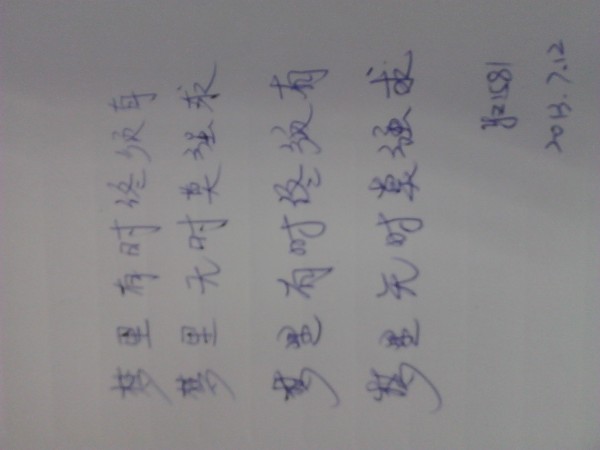 梦里有时终须有
梦里无时莫强求
梦里有时终须有
梦里无时莫强求
yz1581
2013.7.12